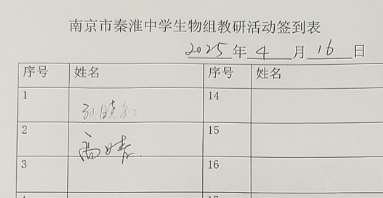 南京市秦淮中学生物组教研活动签到表
2025年4月16日
序号 姓名 序号 姓名
1 14
2 高婧 15
3 16